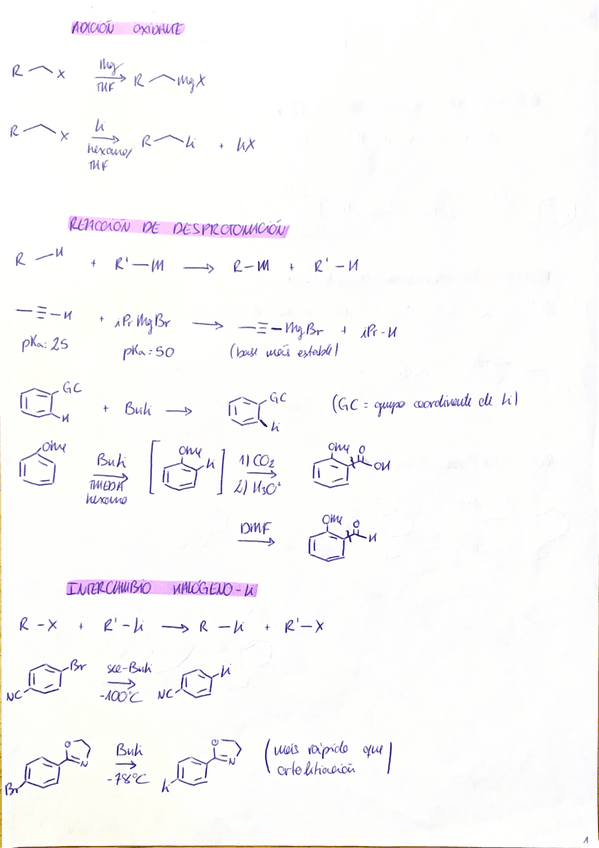 ADICIÓN OXIDANTE
R X Mg THF R MgX
R X Li hexano/ THF R Li + LiX
REACCIÓN DE DESPROTONACIÓN
R-H + R'-M → R-M + R'-H
-≡-H + iPrMgBr → -≡-MgBr + iPr-H
pKa: 25 pKa: 50 (base máis estable)
GC H + BuLi → GC Li (GC = grupo coordinante de Li)
OMe BuLi TMEDA hexano [OMe Li] 1) CO2 2) H3O+ OMe O OH
DMF OMe O H
INTERCAMBIO HALÓGENO-Li
R-X + R'-Li → R-Li + R'-X
NC Br sec-BuLi -100°C NC Li
Br O N BuLi -78°C Li O N (máis rápido que
ortolitiación)
1